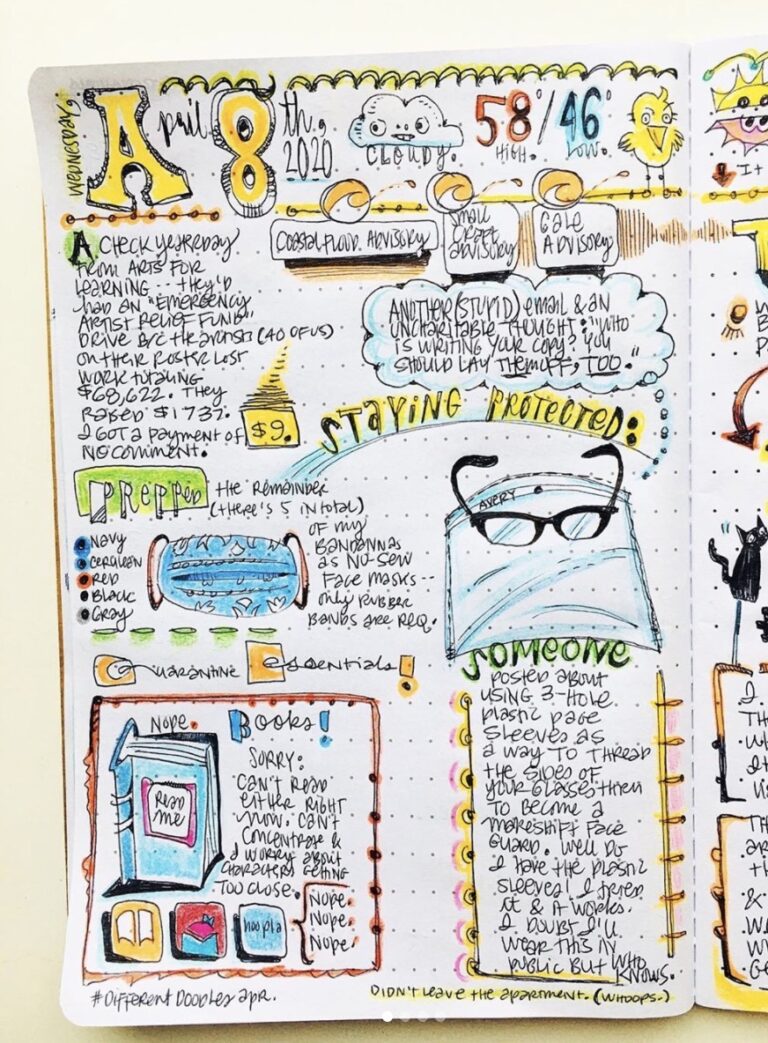 WEDNESDAY,
April 8th, 2020
CLOUDY.
58°/46°
HIGH. LOW.
COASTAL FLOOD ADVISORY
SMALL
CRAFT
ADVISORY
GALE
ADVISORY
A CHECK YESTERDAY
FROM ARTS FOR
LEARNING--- THEY'D
HAD AN "EMERGENCY
ARTIST RELIEF FUND"
DRIVE B/C THE ARTISTS (40 OF US)
ON THEIR ROSTER LOST
WORK TOTALING
$68,622. THEY
RAISED $1737.
I GOT A PAYMENT OF
NO COMMENT.
$9.
ANOTHER (STUPID) EMAIL & AN
UNCHARITABLE THOUGHT: "WHO
IS WRITING YOUR COPY? YOU
SHOULD LAY THEM OFF, TOO."
STAYING PROTECTED:
AVERY
PREPPED THE REMAINDER
(THERE'S 5 IN TOTAL)
OF MY
BANDANNAS
AS NO-SEW
FACE MASKS--
ONLY RUBBER
BANDS ARE REQ.
NAVY
CERULEAN
RED
BLACK
GRAY
QUARANTINE ESSENTIALS!
NOPE. BOOKS!
READ
ME
SORRY:
CAN'T READ
EITHER RIGHT
NOW. CAN'T
CONCENTRATE &
I WORRY ABOUT
CHARACTERS GETTING
TOO CLOSE.
hoopla
NOPE.
NOPE.
NOPE.
SOMEONE
POSTED ABOUT
USING 3-HOLE
PLASTIC PAGE
SLEEVES AS
A WAY TO THREAD
THE SIDES OF
YOUR GLASSES THEM
TO BECOME A
MAKESHIFT FACE
GUARD. WELL DO
I HAVE THE PLASTIC
SLEEVES! I TRIED
IT & IT WORKS.
I DOUBT I'LL
WEAR THIS IN
PUBLIC BUT WHO
KNOWS.
#DIFFERENT DOODLES APR.
DIDN'T LEAVE THE APARTMENT. (WHOOPS.)